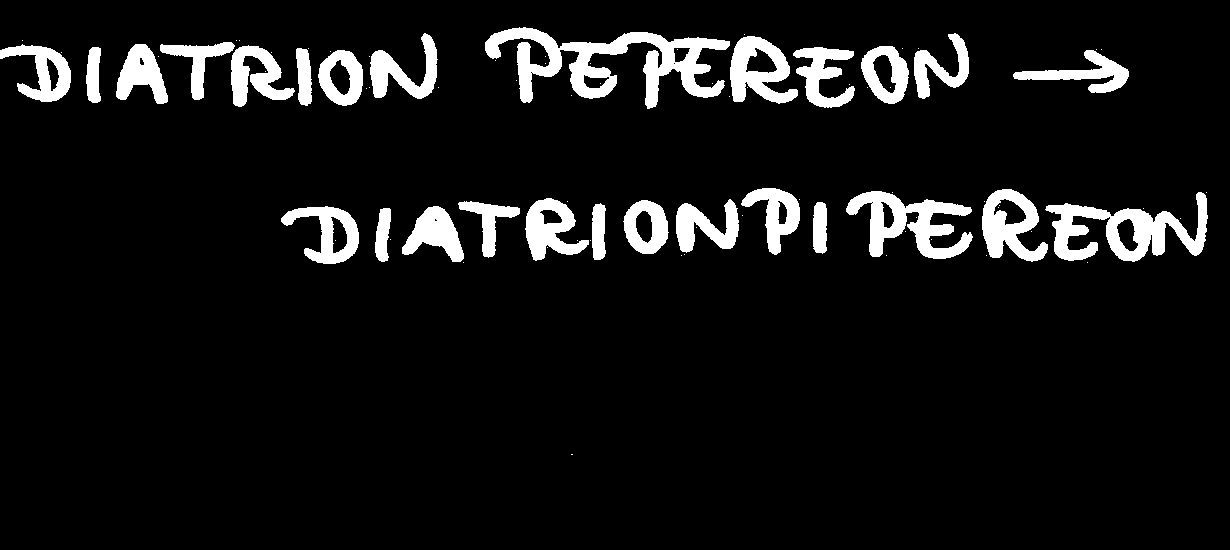 DIATRION PEPEREON →
DIATRIONPIPEREON